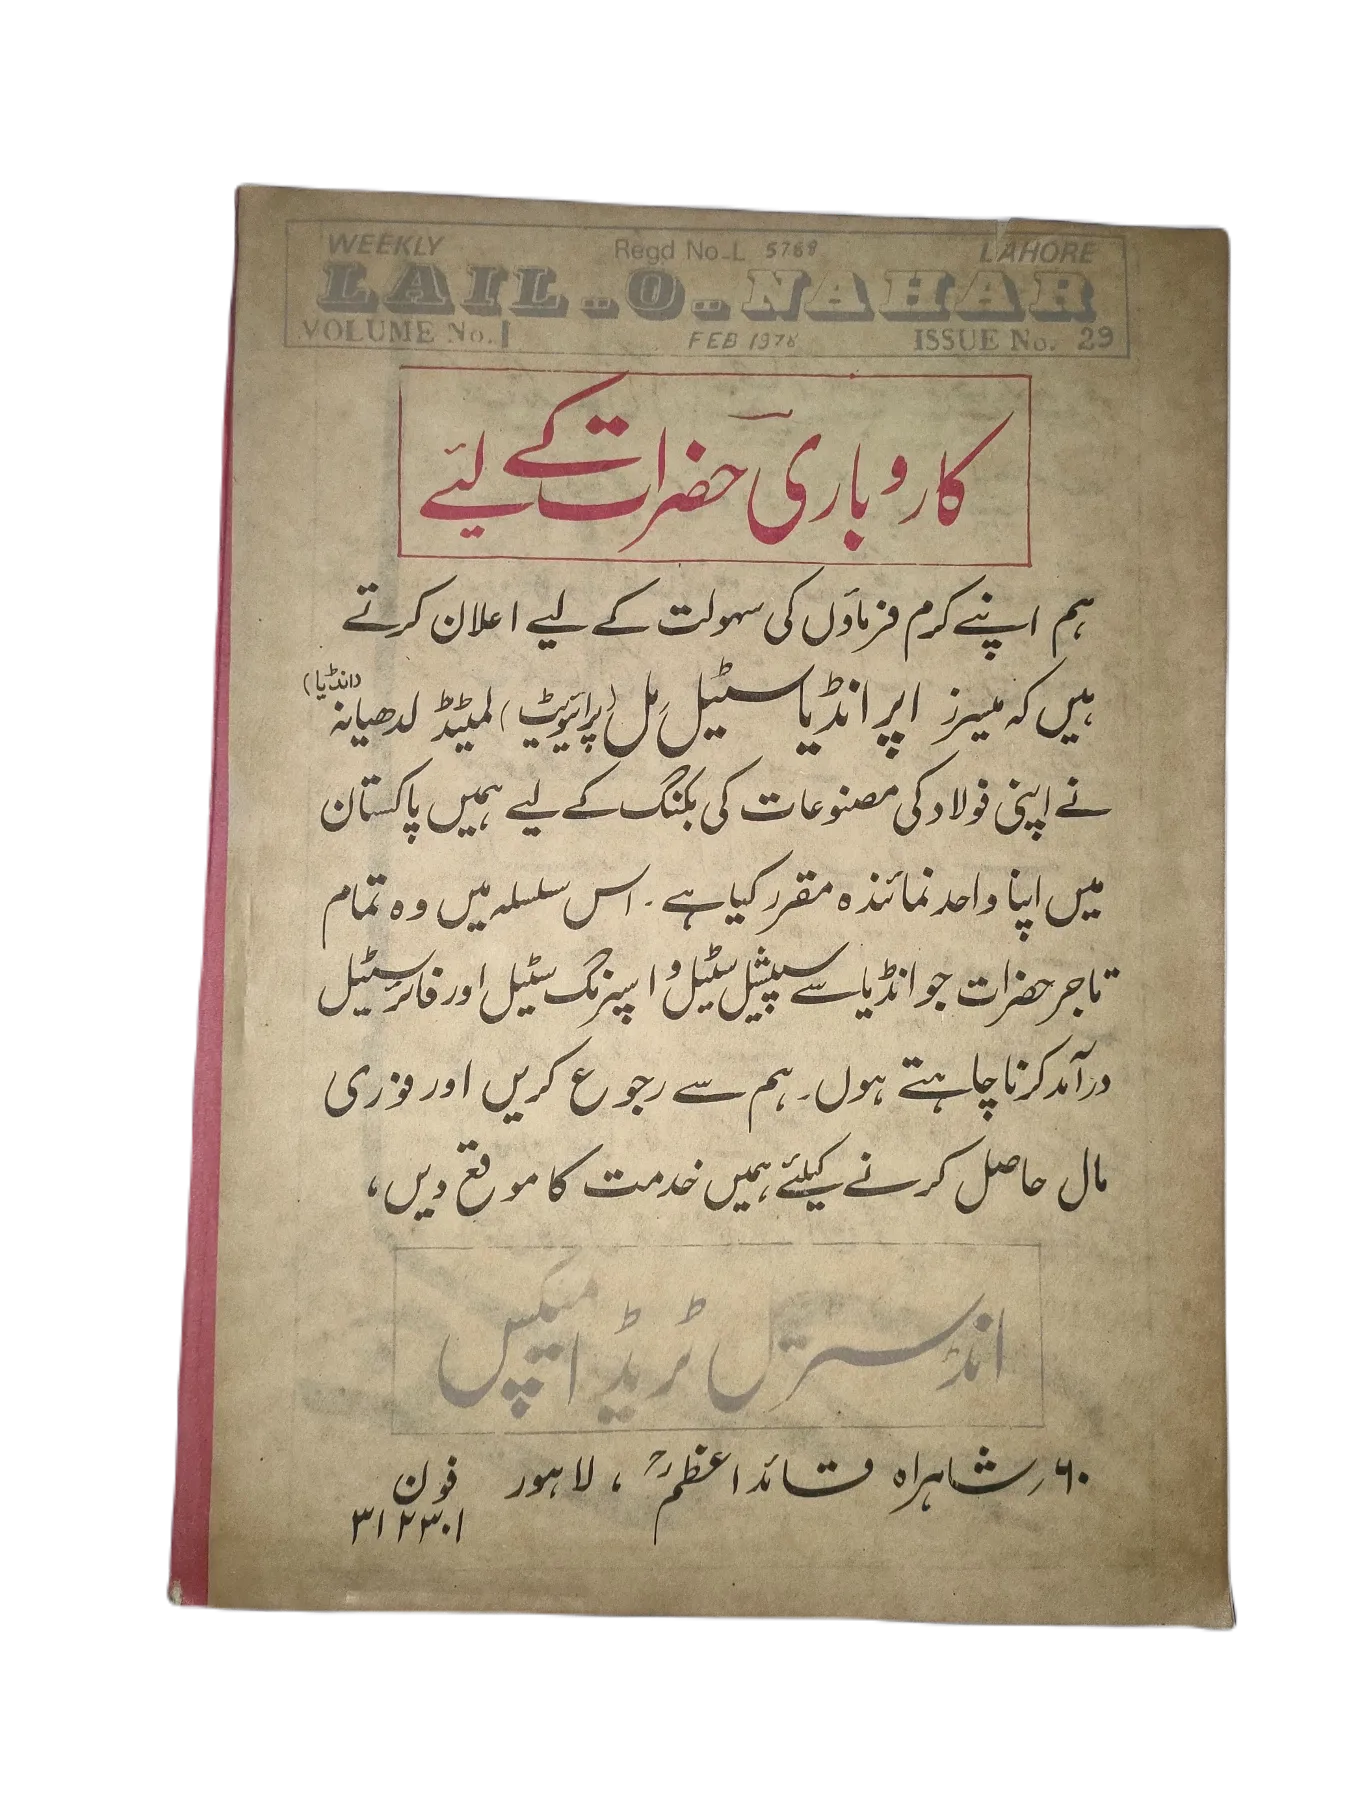 WEEKLY Regd No_L 5768 LAHORE
LAIL_O_NAHAR
VOLUME No. 1 FEB 1978 ISSUE No. 29
کاروباری حضرات کے لئے
ہم اپنے کرم فرماؤں کی سہولت کے لیے اعلان کرتے
ہیں کہ میسرز اپر انڈیا سٹیل مل (پرائیویٹ) لمیٹڈ لدھیانہ (انڈیا)
نے اپنی فولاد کی مصنوعات کی بکنگ کے لیے ہمیں پاکستان
میں اپنا واحد نمائندہ مقرر کیا ہے ۔ اس سلسلہ میں وہ تمام
تاجر حضرات جو انڈیا سے سپیشل سٹیل و اسپرنگ سٹیل اور فائر سٹیل
درآمد کرنا چاہتے ہوں ۔ ہم سے رجوع کریں اور فوری
مال حاصل کرنے کیلئے ہمیں خدمت کا موقع دیں ،
انڈسٹریل ٹریڈ امپکس
۶۰؍ شاہراہ قائد اعظمؒ ، لاہور فون
۳۱۲۳۰۱